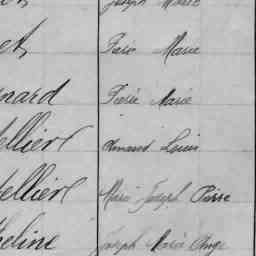 Joseph Marie
et Marie
nard Marie
ellier Armand Louis
ellier Marie Joseph Pierre
eline Joseph Marie Ange